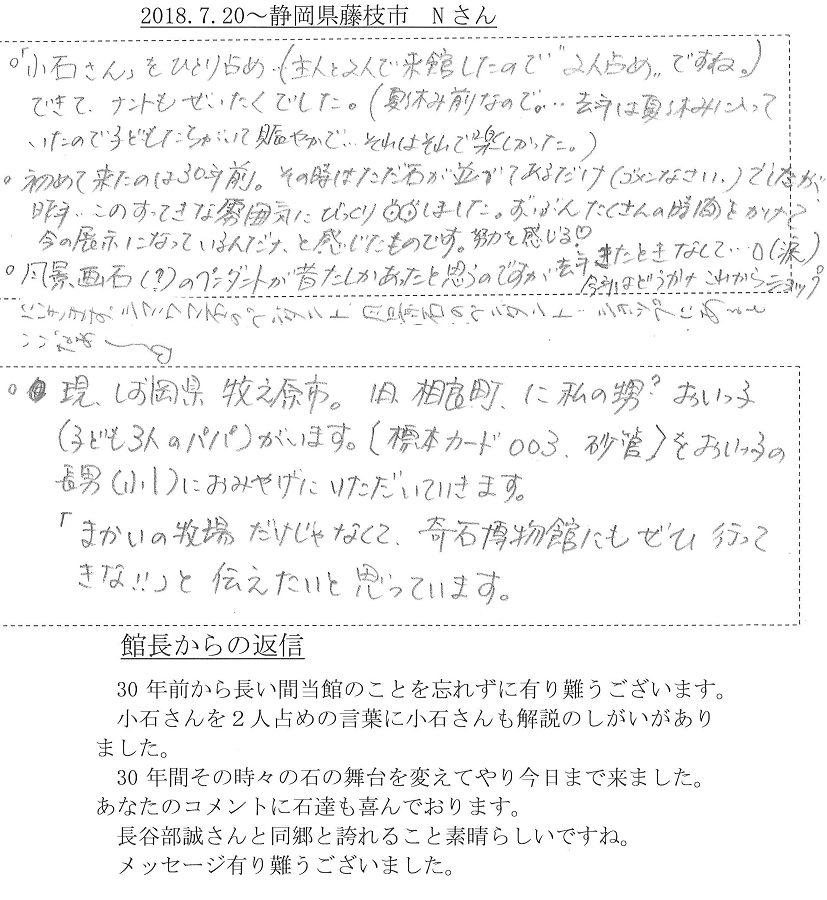 2018.7.20～静岡県藤枝市　Nさん
○「小石さん」をひとり占め、(主人と2人で来館したので"2人占め"ですね。)
できて、ナントもぜいたくでした。(夏休み前なので。… 去年は夏休みに入って
いたので子どもたちがいて賑やかで…それはそれで楽しかった。)
○ 初めて来たのは30年前。その時はただ石が並べてあるだけ(ゴメンなさい。)でしたが、
昨年…このすってきな雰囲気にびっくりしました。ずいぶんたくさんの時間をかけて
今の展示になっているんだナ、と感じたものです。努力を感じる♡
○ 風景画石(?)のペンダントが昔たしかあったと思うのですが去年きたときなくて…(涙)
今年はどうかナ これからショップ
○ 現、しず岡県 牧之原市。旧、相良町、に私の甥?おいっ子
(子ども3人のパパ)がいます。〔標本カード003、砂管〕をおいっ子の
長男(小1)におみやげにいただいていきます。
「まかいの牧場だけじゃなくて、奇石博物館にもぜひ行って
きな!!」と伝えたいと思っています。
館長からの返信
30年前から長い間当館のことを忘れずに有り難うございます。
小石さんを２人占めの言葉に小石さんも解説のしがいがあり
ました。
30年間その時々の石の舞台を変えてやり今日まで来ました。
あなたのコメントに石達も喜んでおります。
長谷部誠さんと同郷と誇れること素晴らしいですね。
メッセージ有り難うございました。